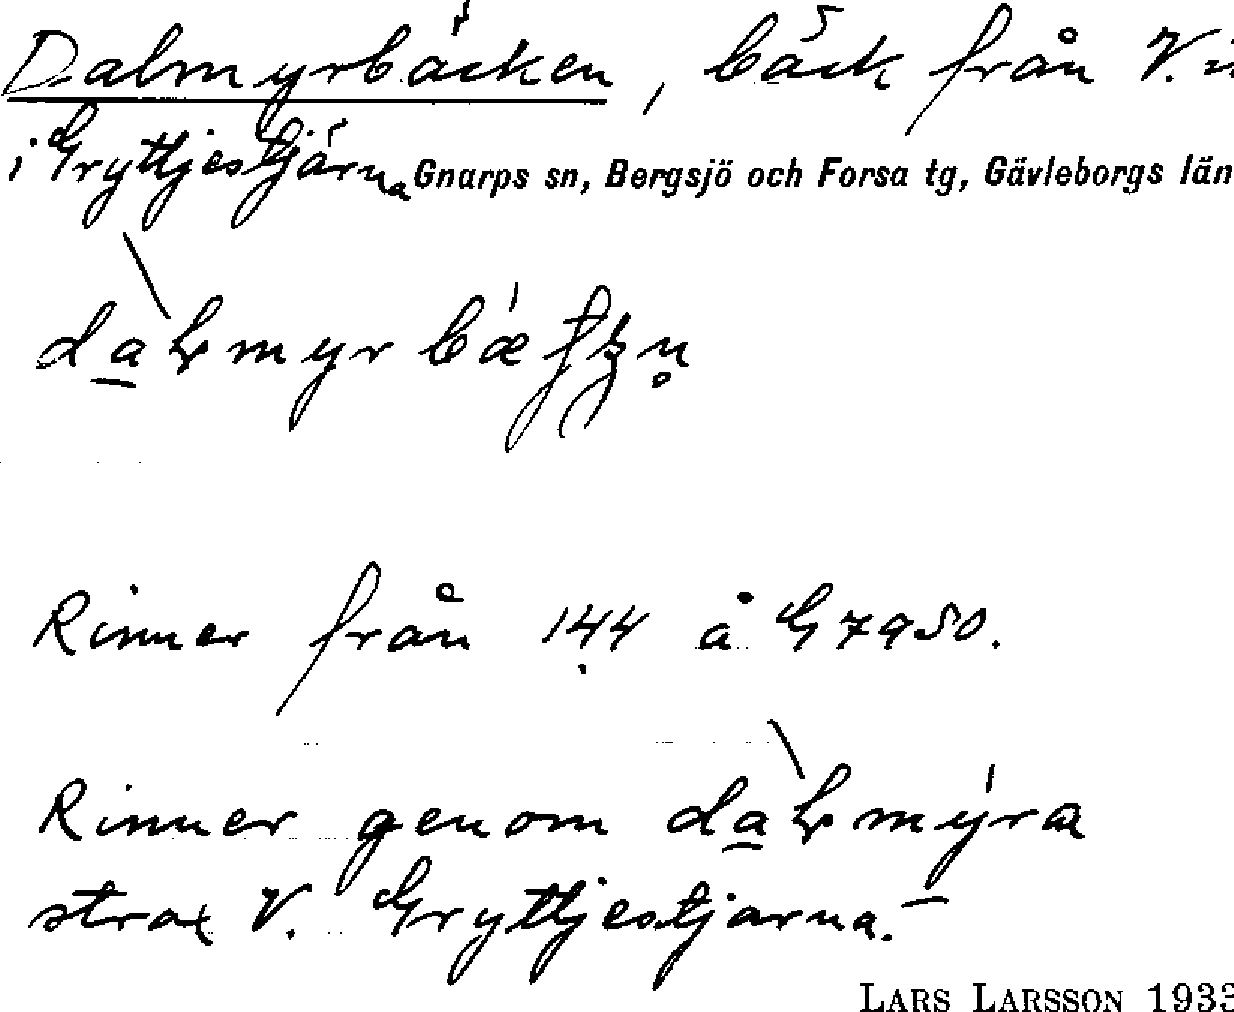 Dalmyrbäcken, bäck från V. in
i Gryttjestjärna Gnarps sn, Bergsjö och Forsa tg, Gävleborgs län
Rinner från 144 å G7950.
Rinner genom myra
strax V. Gryttjestjärna.
LARS LARSSON 1933